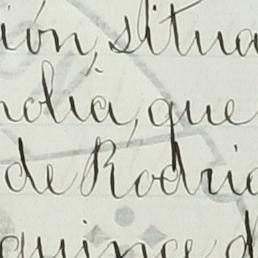 ión, situa
nolia, que
de Rodrig
quince d